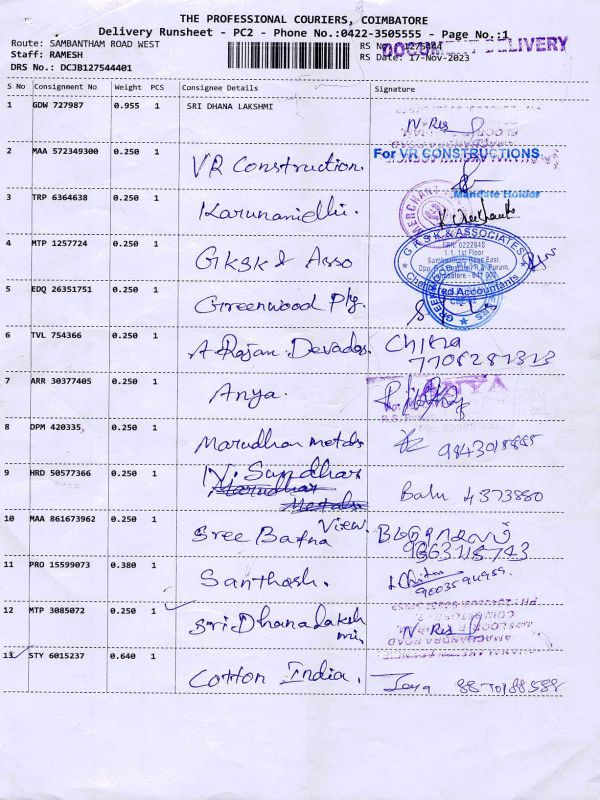 THE PROFESSIONAL COURIERS, COIMBATORE
Delivery Runsheet - PC2 - Phone No.:0422-3505555 - Page No.:1
Route: SAMBANTHAM ROAD WEST
RS No
DOCUMENT DELIVERY
Staff: RAMESH
RS Date: 17-Nov-2023
DRS No.: DCJB127544401
S No Consignment No Weight PCS Consignee Details Signature
1 GDW 727987 0.955 1 SRI DHANA LAKSHMI
N. Res
2 MAA 572349300 0.250 1 VR Construction.
For VR CONSTRUCTIONS
Mandate Holder
3 TRP 6364638 0.250 1 Karunanidhi.
MERCHANT
4 MTP 1257724 0.250 1 GKSK & Asso
G K S K & ASSOCIATES
FRN: 022294S
1st Floor
Sambandham Road East,
Chartered Accountants
5 EDQ 26351751 0.250 1 Greenwood Ply.
6 TVL 754366 0.250 1 A. Rajan. Devados.
7 ARR 30377405 0.250 1 Anya.
8 DPM 420335 0.250 1 Marudhar metals
9 HRD 50577366 0.250 1 Ni. Sundhar
Balu 4373880
10 MAA 861673962 0.250 1 Sree Bafna View.
11 PRO 15599073 0.380 1 Santhosh.
12 MTP 3085072 0.250 1 Sri Dhanalaksh
mi,
N. Res
13 STY 6015237 0.640 1 Cotton India.
Jaya